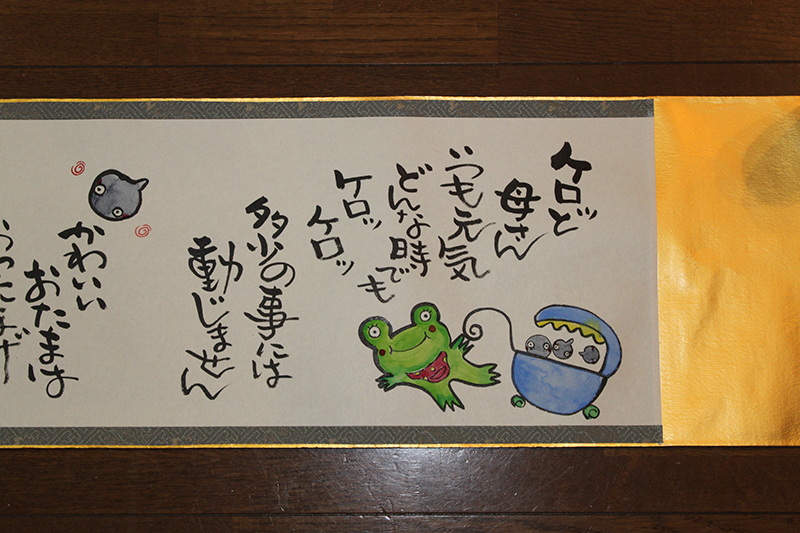 ケロど
母さん
いつも元気
どんな時
でも
ケロッ
ケロッ
多少の事には
動じません
かわいい
おたまは